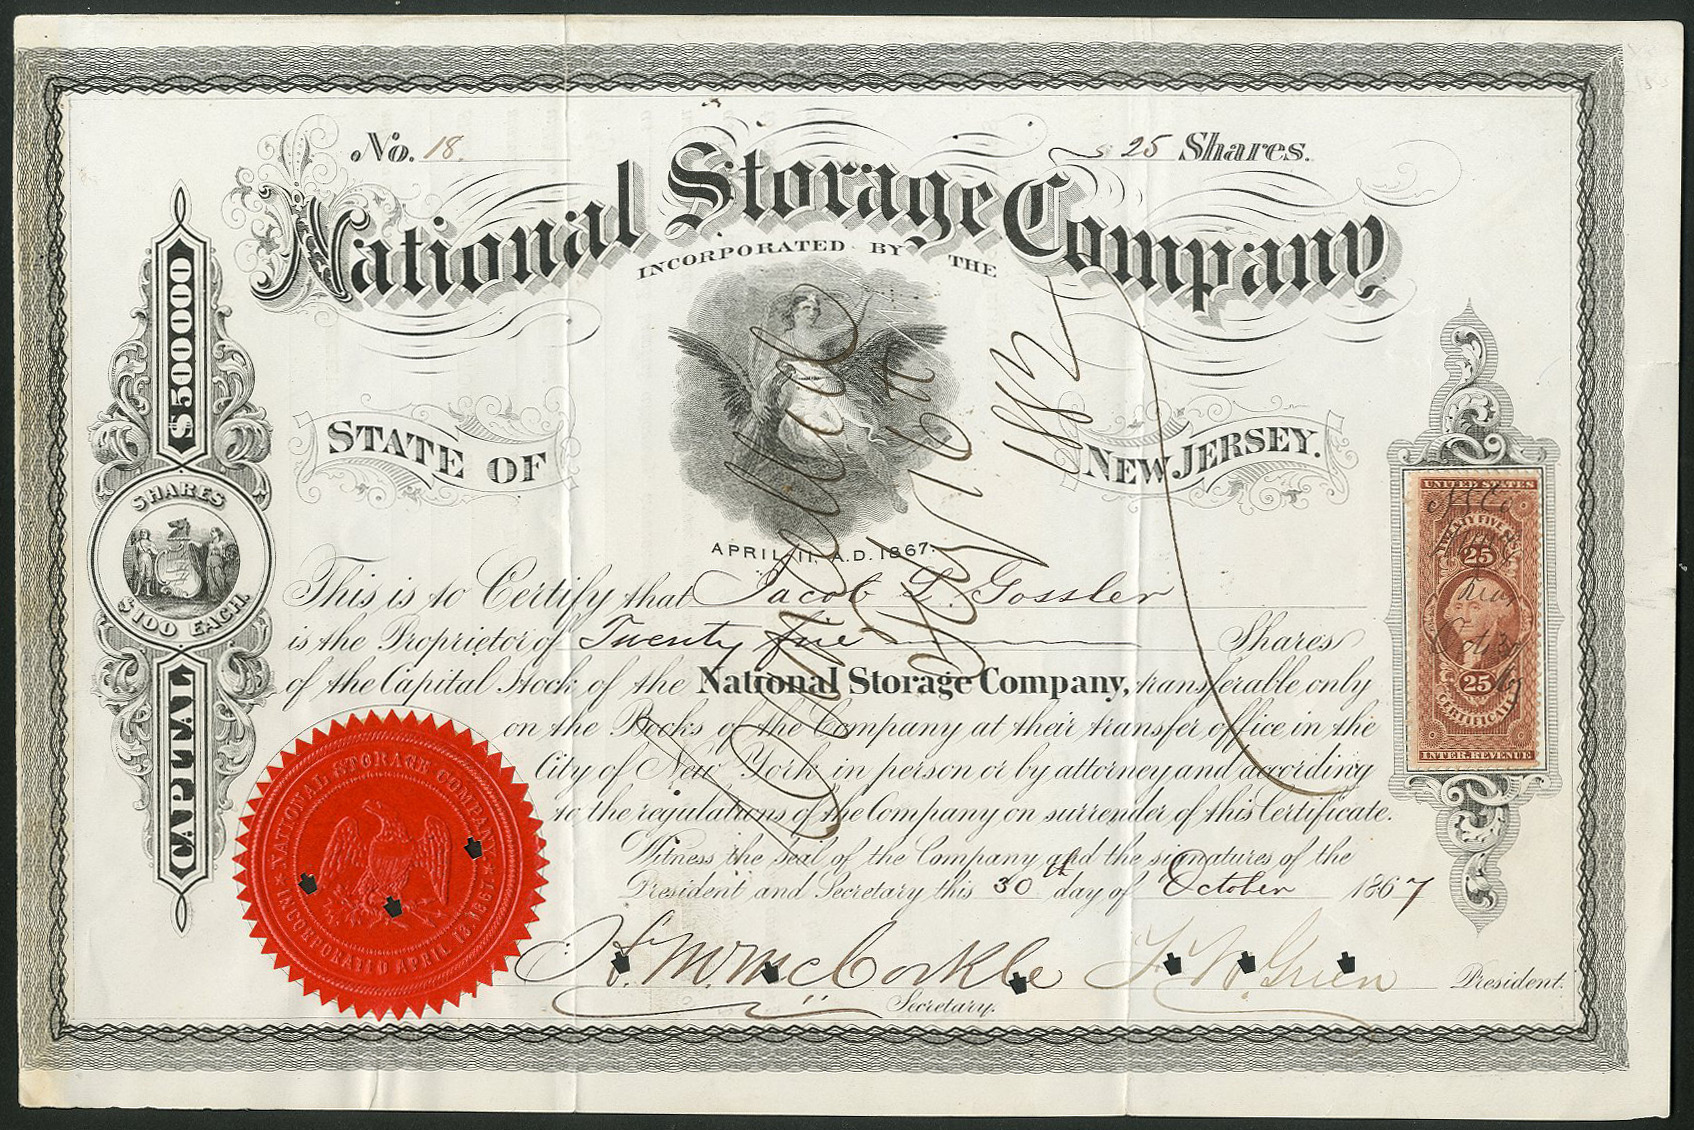 No. 18.
25 Shares.
National Storage Company
INCORPORATED BY THE
STATE OF
NEW JERSEY.
APRIL 11, A.D. 1867.
CAPITAL
$500000
SHARES
$100 EACH.
This is to Certify that Jacob L. Gossler
is the Proprietor of Twenty five Shares
of the Capital Stock of the National Storage Company, transferable only
on the Books of the Company at their transfer office in the
City of New York, in person or by attorney and according
to the regulations of the Company on surrender of this Certificate.
Witness the seal of the Company and the signatures of the
President and Secretary this 30th day of October 1867
H. S. M. McCorkle
Secretary.
F. W. Grien
President.
NATIONAL STORAGE COMPANY
INCORPORATED APRIL 13, 1867
UNITED STATES
25
N. S. Co
Oct 30
67
25
CERTIFICATE
INTER. REVENUE
Cancelled
1882